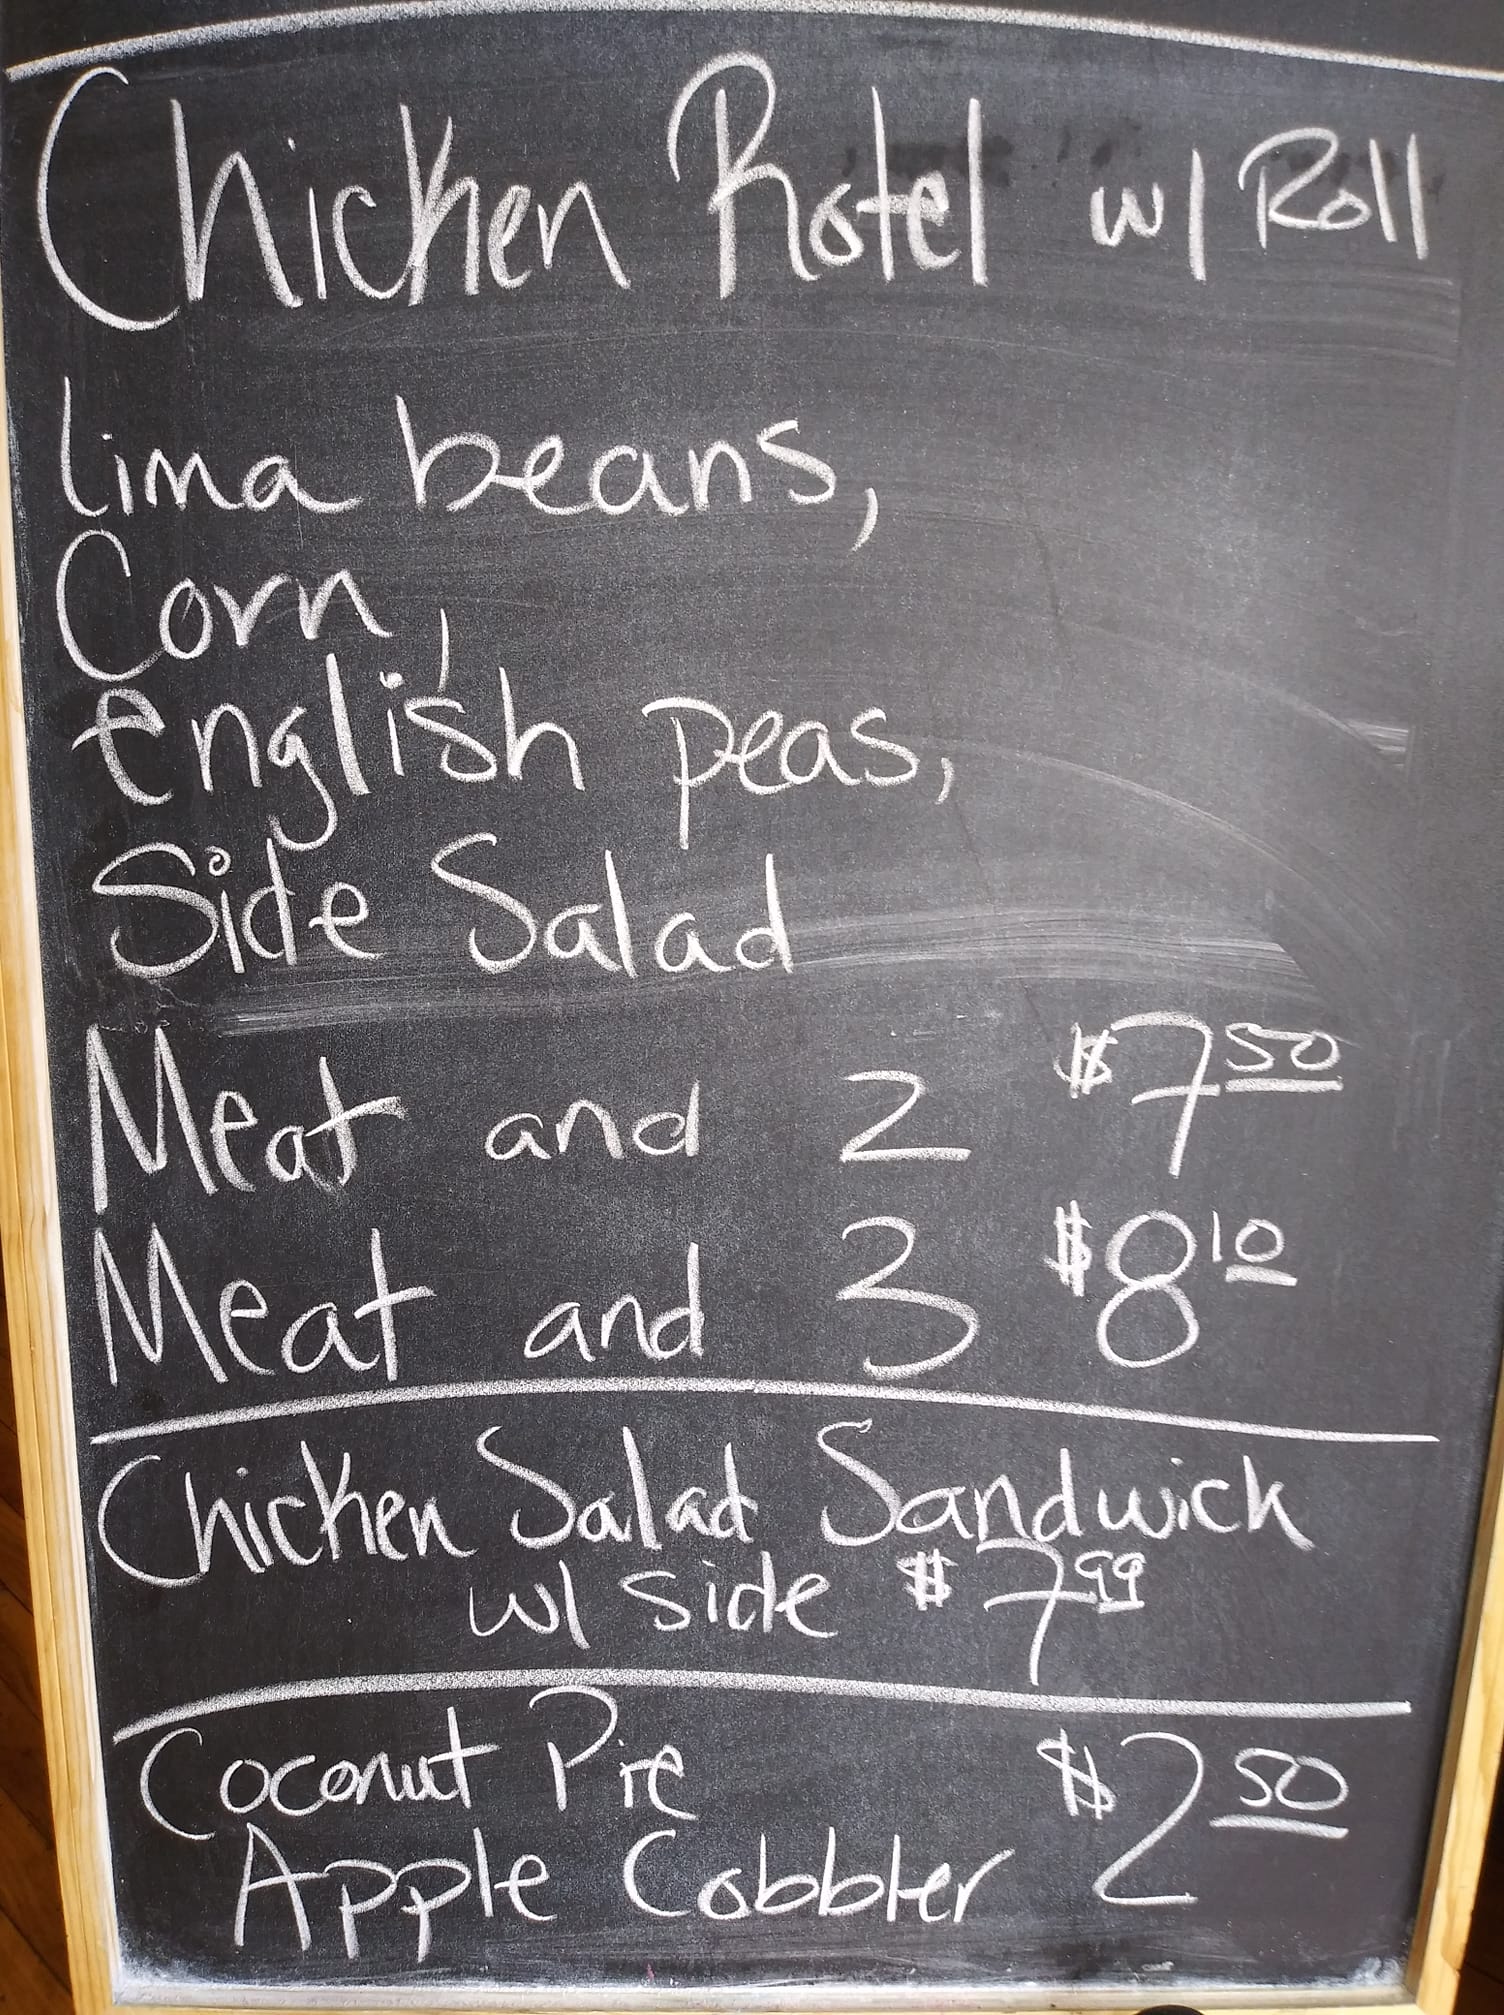 Chicken Rotel w/ Roll
lima beans,
Corn,
english peas,
Side Salad
Meat and 2 $7 50
Meat and 3 $8 10
Chicken Salad Sandwick
w/ side $7 99
Coconut Pie $2 50
Apple Cobbler